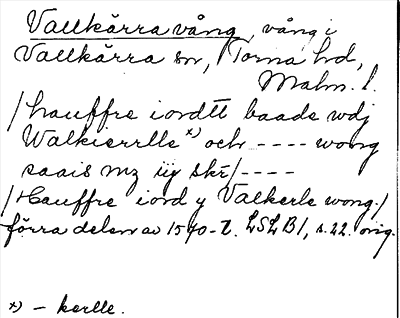 Vallkärra vång, vång i
Vallkärra sn, Torna hd,
Malm. l.
/hauffre iordtt baade wdj
Walkierrlle x) och ---- wong
saais mz iij skr/----
/Hauffre iord y Valkerle wong./
förra delen av 1540-t. LSLB1, s. 22. orig.
x) - kerlle.